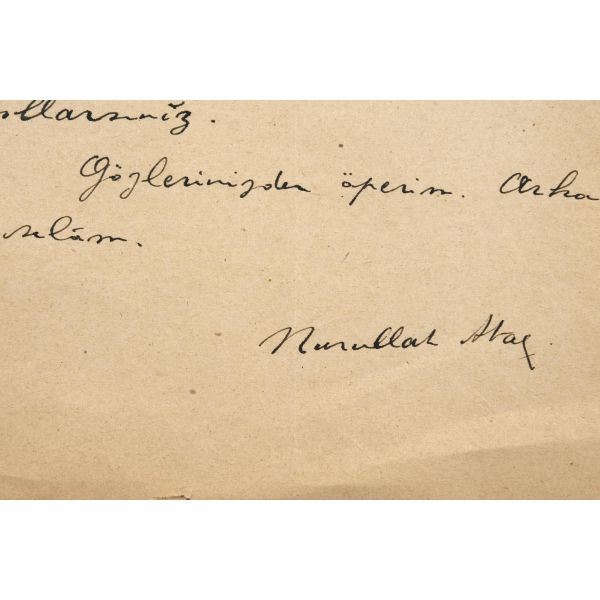 ollarsınız.
Gözlerinizden öperim. Arka
selâm.
Nurullah Ataç